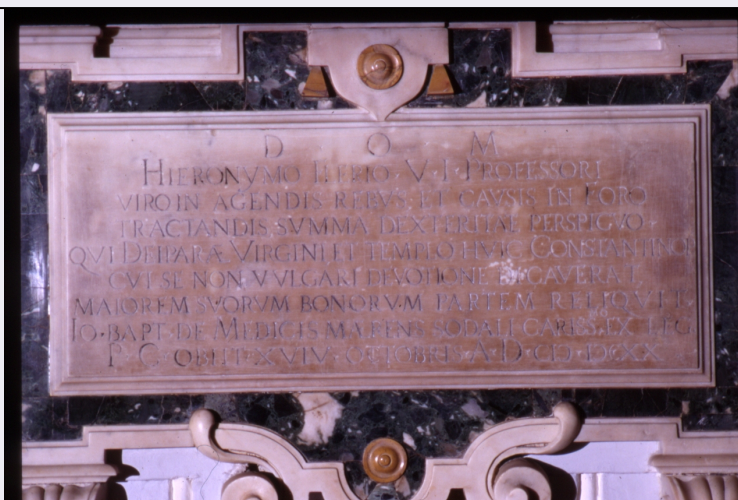 D O M
HIERONYMO · V · I · PROFESSORI
VIRO IN AGENDIS REBVS, ET CAVSIS IN FORO
TRACTANDIS SVMMA DEXTERITAE PERSPICVO
QVI DEIPARÆ VIRGINI ET TEMPLO HVIC
CVI SE NON VVLGARI DEVOTIONE
MAIOREM SVORVM BONORVM PARTEM RELIQVIT
IO · BAPT · DE MEDICIS SODALI EX
P · C · OBIIT OCTOBRIS · A · D